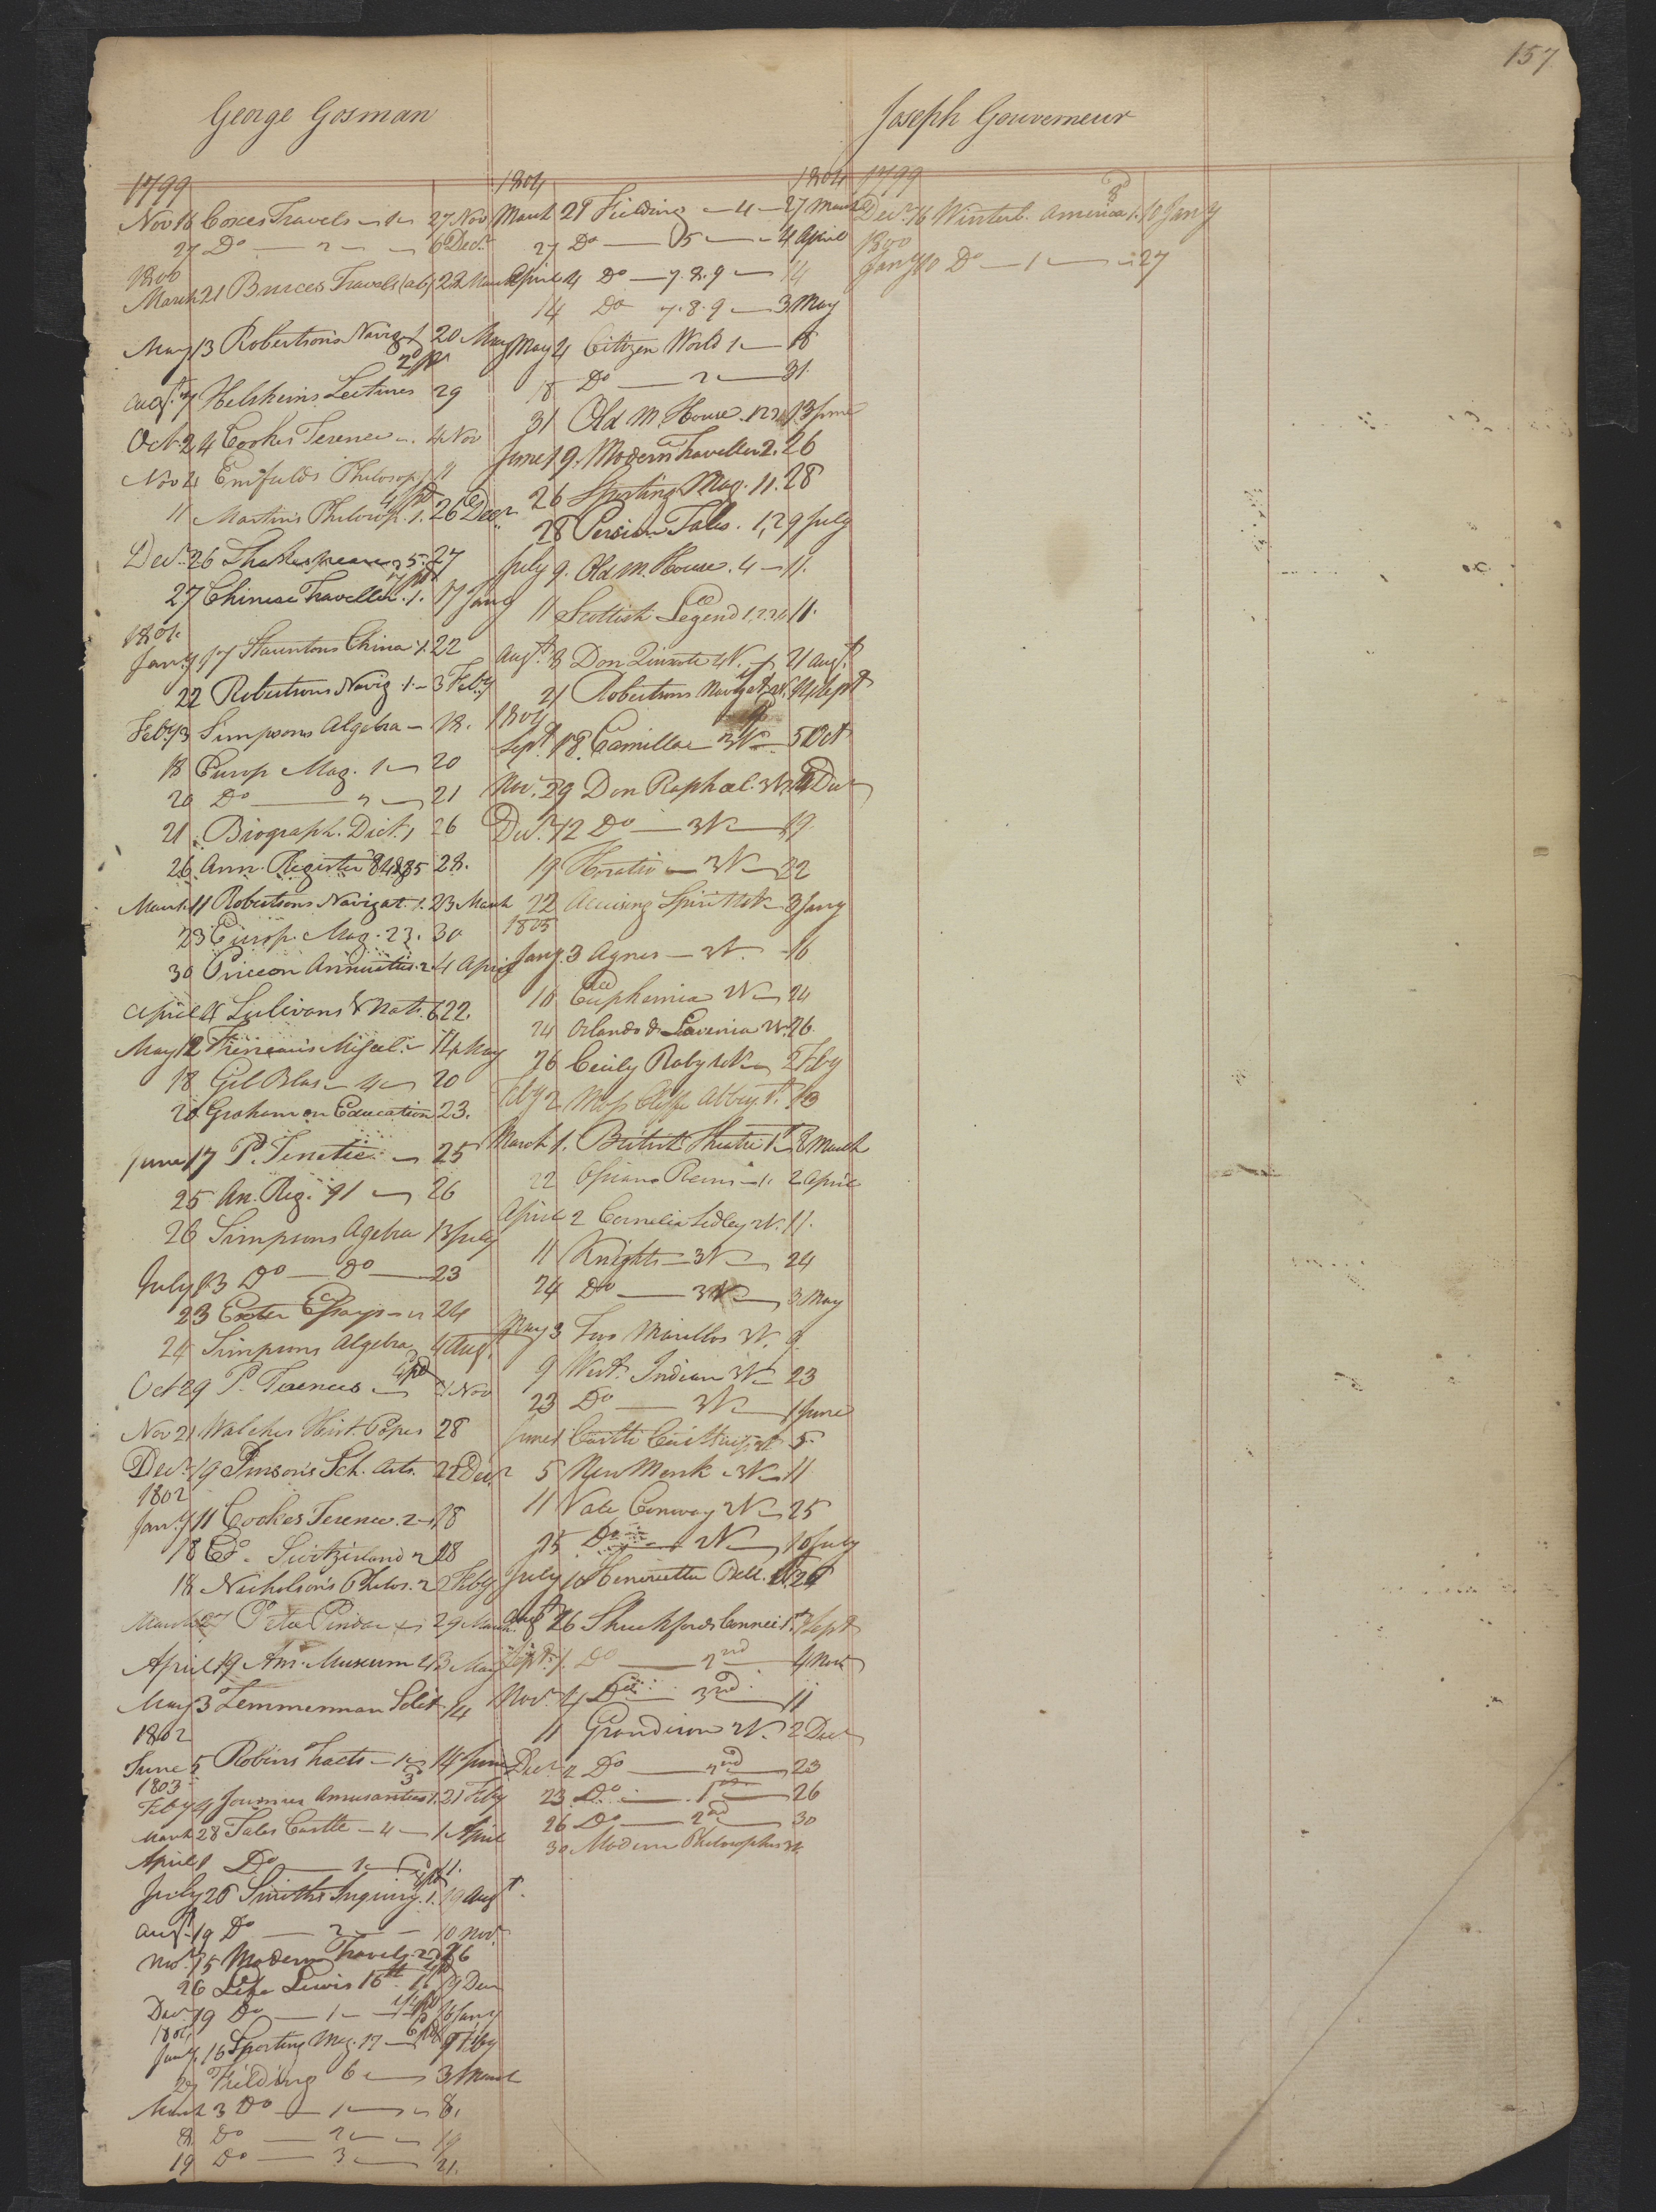 157
George Gosman
1799
Nov 16 Coxes Travels - 1 - 27 Nov
27 Do - 2 - 6 Decr
1800
March 21 Bruces Travels (ab) 22 March
May 13 Robertsons Navigt 20 May
2/ pd
Augt 7 Helshams Lectures 29
Oct 24 Cookes Terence - 4 Nov
Nov 4 Enfields Philosop 1 11
4/ pd
11 Martins Philosop. 1. 26 Decr
Decr 26 Shakespeare 5. 27
27 Chinese Traveller. 1. 17 Jany
1801.
Jany 17 Stauntons China 1. 22
22 Robertsons Navig 1 - 3 Feby
Feby 3 Simpsons Algebra - 18.
18 Europ Mag. 1 - 20
20 Do - 2 - 21
21 Biograph. Dict. 1 26
26 Ann. Register 84 & 85 28.
March 11 Robertsons Navigat. 1. 23 March
23 Europ. Mag. 23. 30
30 Price on Annuities. 2. 4 April
April 4 Sulivans V Nat. 6 22.
May 12 Freneau's Miscel. - 14 May
18 Gil Blas - 4 - 20
20 Graham on Education 23.
June 17 P. Terence - 25
25 An. Reg. 91 - 26
26 Simpsons Agebra 13 July
July 13 Do - Do - 23
23 Exeter Essays - 24
24 Simpsons Algebra 4 Aug.
Oct 29 P. Terences - 21 Nov
Nov 21 Walches Hist. Popes 28
Decr 19 Imson's Sch. Arts. 22 Decr
1802
Jany 11 Cookes Terence. 2 - 18
18 Switzerland 2 28
18 Nicholson's Philos. 2 2 Feby
March 27 Peter Pindar - 29 March.
April 19 Am. Museum 4 3 May
May 3 Zemmerman Solit. 14
1802
June 5 Robins Tracts - 1 - 14 June
1803
Feby 4 Journies Amusantes 1. 21 Feby
March 28 Tales Castle - 4 - 1 April
April 1 Do - 1 - 11.
July 26 Smiths Inquiry. 1. 19 Augt.
Augt 19 Do - 2 - 10 Nov.
Nov. 15 Modern Travels. 2 26
26 Life Lewis 16th. 1. 19 Decr
Decr 19 Do - 1 - 16 Jany
1804
Jany. 16 Sporting Mag. 17 - 9 Feby
29 Fielding 6 - 3 March
March 3 Do - 1 - 8.
8. Do - 2 - 19
19 Do - 3 - 21.
1804 1804
March 21 Fielding - 4 - 27 March
27 Do - 5 - 4 April
April 4 Do - 7.8.9 - 14
14 Do 7.8.9 - 3 May
May 4 Citizen World 1 - 18
18 Do - 2 - 31
31 Old M. House. 123 13 June
June 19. Modern Traveller 2. 26
26 Sporting Mag. 11. 28
28 Persian Tales. 1, 2 9 July
July 9. Old M. House. 4 - 11.
11 Scottish Legend 1,2,3 11.
Augt. 8 Don Quixote 4V. 21 Augt.
21 Robertsons Navigat 24 Sept
1804
Sept 18. Camilla 3V - 5 Oct
Nov. 29 Don Raphael. 3V. 12 Decr
Decr. 12 Do - 3V - 19
19 Horatio - 3V - 22
22 Accusing Spirit 4V - 3 Jany
1805
Jany. 3 Agnes - 2V. - 16
16 Euphemia 2V - 24
24 Orlando & Lavinia 2V. 26.
26 Cicily Raby 4V - 2 Feby
Feby 2 Moss Cliffe Abbey. 13
March 1. British Theatre 1st 8 March
22 Ossians Poems - 1. 2 April
April 2 Cornelia Sedley 2V. 11.
11 Knights - 3V - 24
24 Do - 3V - 3 May
May 3 Two Marillos 2V. 9.
9 West Indian 3V - 23
23 Do - 3V - 1 June
June 1 Castle 5.
5 New Monk - 3V - 11
11 Vale Conway 2V - 25
25 Do - 2V - 10 July
July 10 Henrietta Bell. 26
Augt 26 Shuckfords Connect 1st 1 Sept
Sept. 1. Do - 2nd - 4 Nov
Nov. 4 Do - 3rd - 11
11 Grandison 2V. 2 Decr
Decr. 2 Do - 2nd - 23
23 Do - 1st - 26
26 Do - 2nd - 30
30 Modern Philosophers
Joseph Gouverneur
1799
Decr. 16 Winterb. America 1. 10 Jany
1800
Jany 10 Do - 1 - 27